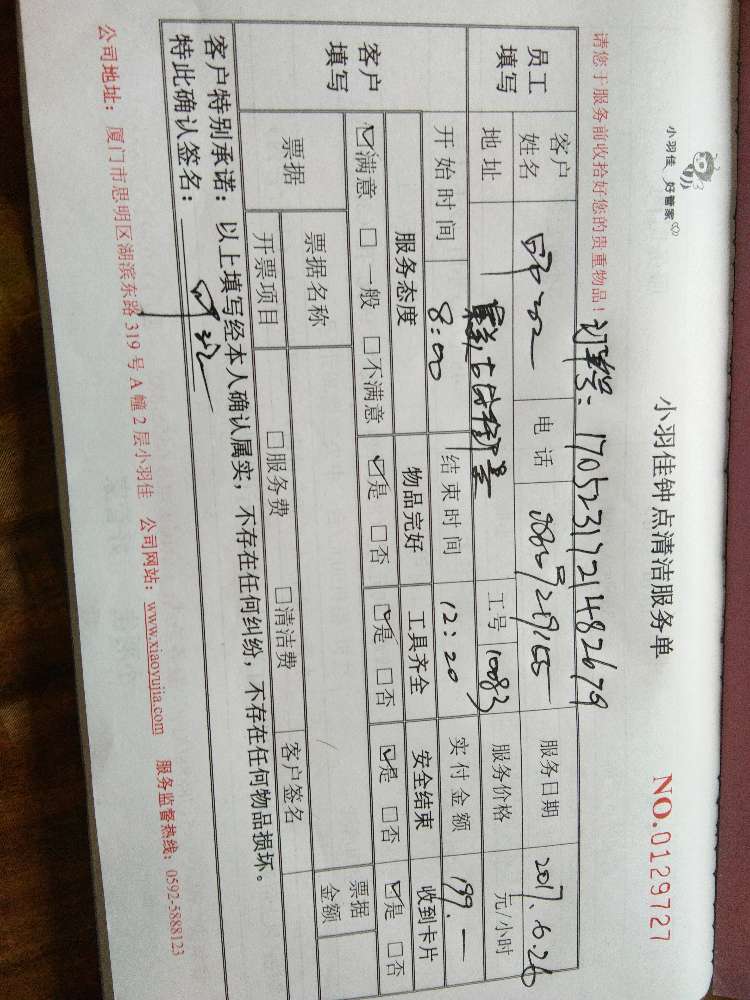 小羽佳 好管家
小羽佳钟点清洁服务单
NO.0129727
请您于服务前收拾好您的贵重物品！
订单号：1705231721482679
员工填写
客户姓名 电话 服务日期 2017.6.26
地址 工号 10083 服务价格 元/小时
开始时间 8:00 结束时间 12:20 实付金额 199.一
客户填写
服务态度 物品完好 工具齐全 安全结束 收到卡片
☑满意 □一般 □不满意 ☑是 □否 ☑是 □否 ☑是 □否 ☑是 □否
票据 票据名称 票据金额
开票项目 □服务费 □清洁费 客户签名
客户特别承诺：以上填写经本人确认属实，不存在任何纠纷，不存在任何物品损坏。
特此确认签名：
公司地址：厦门市思明区湖滨东路319号A幢2层小羽佳 公司网站：www.xiaoyujia.com 服务监督热线：0592-5888123